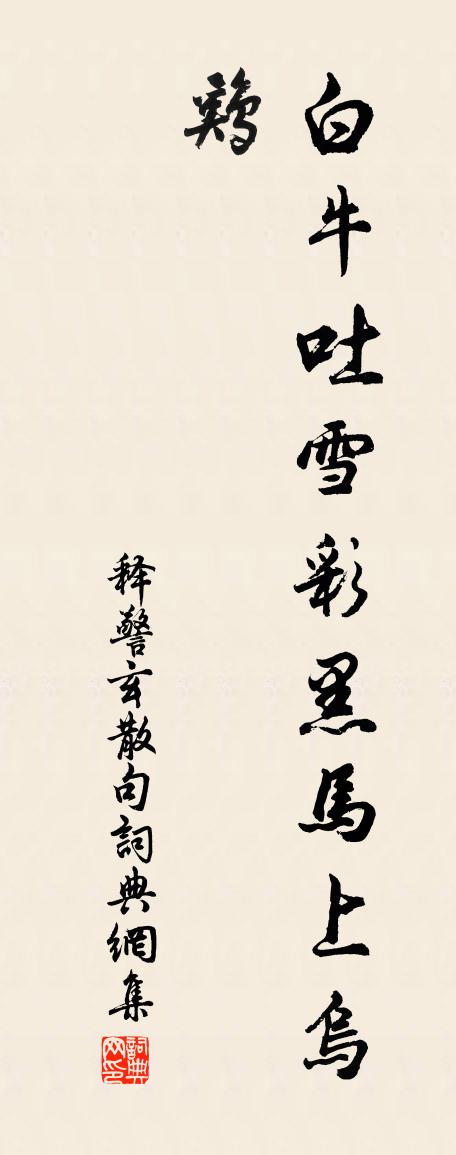 白牛吐雪彩黑馬上烏
鷄
释警玄散句詞典網集
詞典
网印